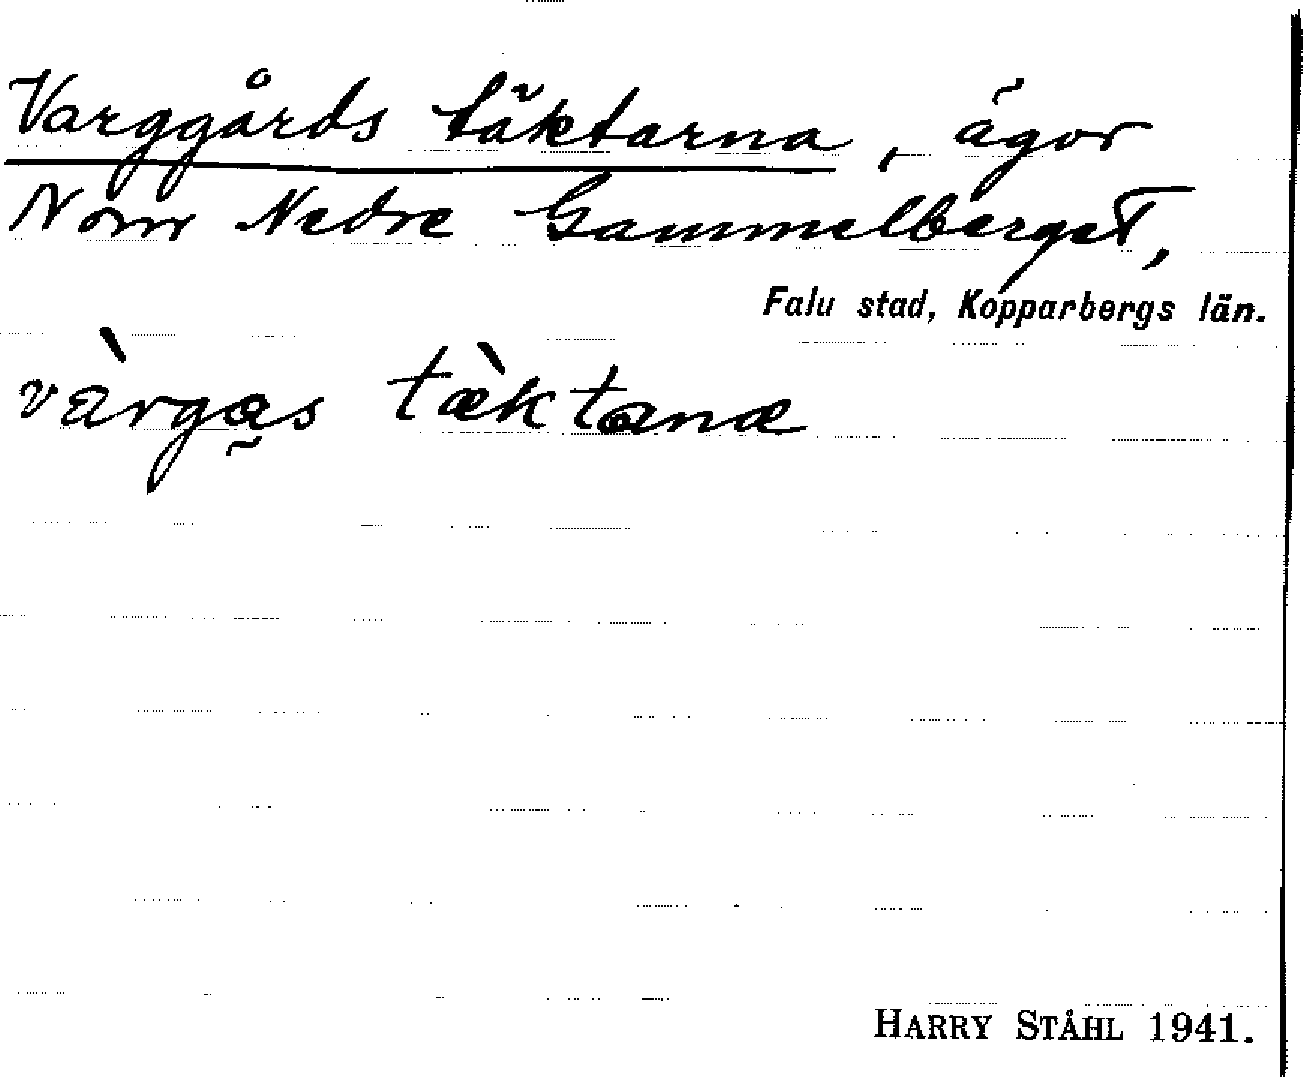 Varggårds täktarna, ägor
Norr Nedre Gammelberget,
Falu stad, Kopparbergs län.
vàrgas tæ̀ktana
HARRY STÅHL 1941.